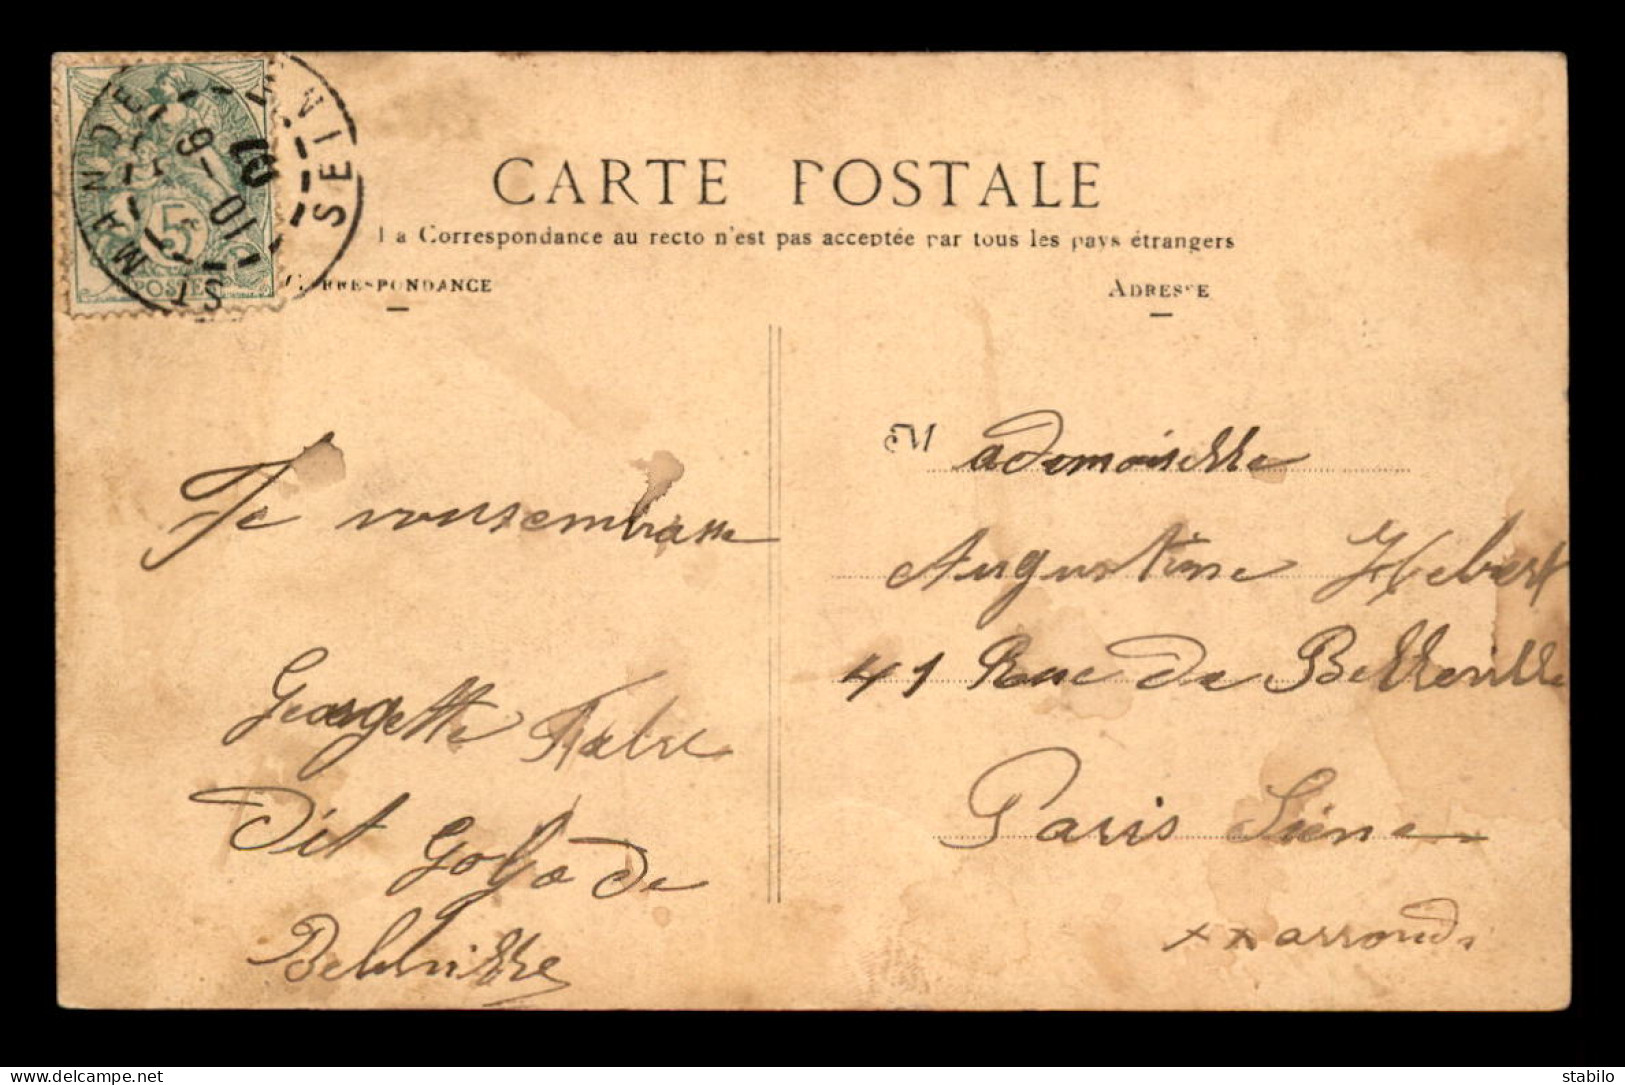 ST MANDÉ
SEINE
6-10
07
5
POSTES
CARTE POSTALE
La Correspondance au recto n'est pas acceptée par tous les pays étrangers
CORRESPONDANCE
ADRESSE
Je vous embrasse
Georgette Fabre
Dit Golo de
Belleville
Mademoiselle
Augustine Hebert
41 Rue de Belleville
Paris Siene
xx arrond.
delcampe.net
stabilo